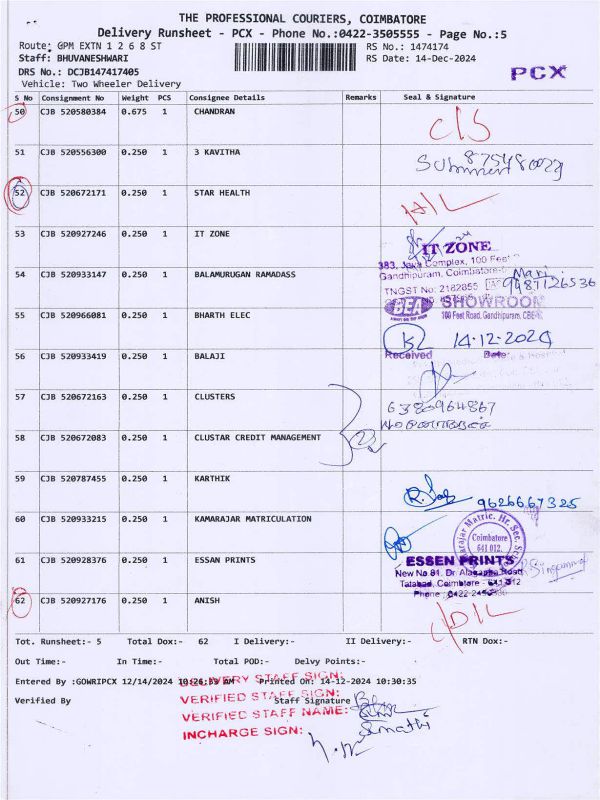 THE PROFESSIONAL COURIERS, COIMBATORE
Delivery Runsheet - PCX - Phone No.:0422-3505555 - Page No.:5
Route: GPM EXTN 1 2 6 8 ST RS No.: 1474174
Staff: BHUVANESHWARI RS Date: 14-Dec-2024
DRS No.: DCJB147417405
PCX
Vehicle: Two Wheeler Delivery
S No Consignment No Weight PCS Consignee Details Remarks Seal & Signature
50 CJB 520580384 0.675 1 CHANDRAN
51 CJB 520556300 0.250 1 3 KAVITHA
52 CJB 520672171 0.250 1 STAR HEALTH
53 CJB 520927246 0.250 1 IT ZONE
IT ZONE
383, Complex, 100 Feet
Gandhipuram, Coimbatore
54 CJB 520933147 0.250 1 BALAMURUGAN RAMADASS
Mari
TNGST No: 2182855
9487126536
BEA SHOWROOM
55 CJB 520966081 0.250 1 BHARTH ELEC
100 Feet Road, Gandhipuram, CBE
14.12.2024
Received Date
56 CJB 520933419 0.250 1 BALAJI
57 CJB 520672163 0.250 1 CLUSTERS
6380964867
58 CJB 520672083 0.250 1 CLUSTAR CREDIT MANAGEMENT
59 CJB 520787455 0.250 1 KARTHIK
9626667325
60 CJB 520933215 0.250 1 KAMARAJAR MATRICULATION
Coimbatore
641 012.
61 CJB 520928376 0.250 1 ESSAN PRINTS
ESSEN PRINTS
New No 81, Dr. Alagappa Road
Tatabad, Coimbatore - 641 012
Phone : 0422
62 CJB 520927176 0.250 1 ANISH
Tot. Runsheet:- 5 Total Dox:- 62 I Delivery:- II Delivery:- RTN Dox:-
Out Time:- In Time:- Total POD:- Delvy Points:-
Entered By :GOWRIPCX 12/14/2024 10:26:39 AM Printed On: 14-12-2024 10:30:35
DELIVERY STAFF SIGN:
Verified By Staff Signature
VERIFIED STAFF SIGN:
VERIFIED STAFF NAME:
INCHARGE SIGN: